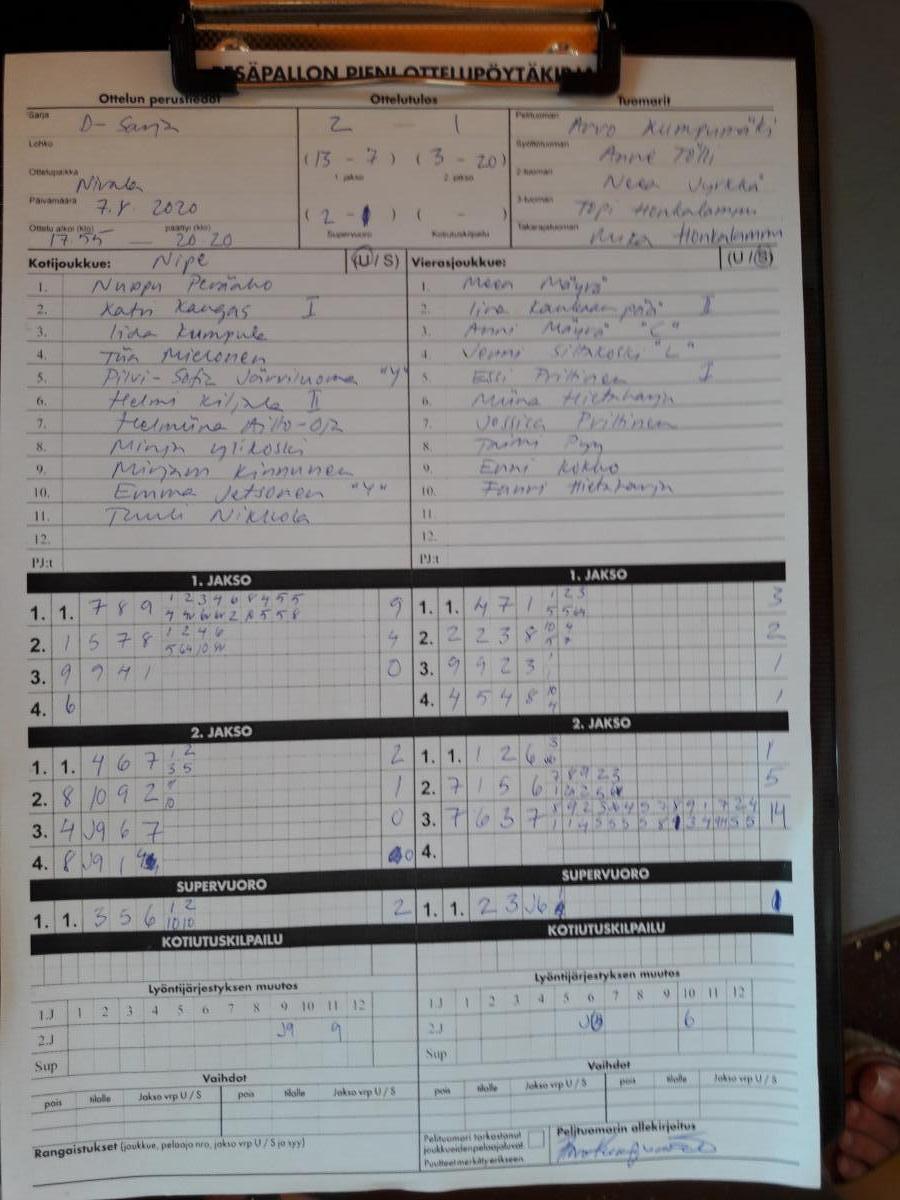 PESÄPALLON PIENI OTTELUPÖYTÄKIRJA
Ottelun perustiedot
Sarja D-Sarja
Lohko
Ottelupaikka Nivala
Päivämäärä 7.8. 2020
Ottelu alkoi (klo) 17.55 — päättyi (klo) 20.20
Ottelutulos
2 — 1
(13 - 7) (3 - 20)
1. jakso 2. jakso
(2 - 1) ( - )
Supervuoro Kotiutuskilpailu
Tuomarit
Pelituomari Arvo Kumpumäki
Syöttötuomari Anne Tölli
2-tuomari Neea Jyrkkä
3-tuomari Topi Honkalammi
Takarajatuomari Honkalammi
Kotijoukkue: Nipe (U / S)
1. Nuppu Peräaho
2. Katri Kangas I
3. Iida Kumpula
4. Tiia Mielonen
5. Pilvi-Sofia Järviluoma "Y"
6. Helmi Kiljala II
7. Helmiina Aitto-oja
8. Minja Ylikoski
9. Mirjam Kinnunen
10. Emma Jetsonen "Y"
11. Tuuli Nikkola
12.
PJ:t
Vierasjoukkue: (U / S)
1. Meea Mäyrä
2. Iina II
3. Anni Mäyrä "C"
4. Jenni Siltakoski "L"
5. Essi Prittinen I
6. Miina Hietaharju
7. Jessica Prittinen
8. Taimi Pyy
9. Enni Kokko
10. Fanni Hietaharju
11.
12.
PJ:t
1. JAKSO
1. 1. 7 8 9 9
2. 1 5 7 8 1 2 4 6 4
3. 9 9 4 1 0
4. 6
1. JAKSO
1. 1. 4 7 1 1 2 3 3
2. 2 2 3 8 2
3. 9 9 2 3 1
4. 4 5 4 8 1
2. JAKSO
1. 1. 4 6 7 1 2 3 5 2
2. 8 10 9 2 1
3. 4 J9 6 7 0
4. 8 J9 1 0
2. JAKSO
1. 1. 1 2 6 1
2. 7 1 5 6 7 8 9 2 3 5
3. 7 6 3 7 14
4.
SUPERVUORO
1. 1. 3 5 6 1 2 10 10 2
SUPERVUORO
1. 1. 2 3 J6 1
KOTIUTUSKILPAILU
KOTIUTUSKILPAILU
Lyöntijärjestyksen muutos
1.J 1 2 3 4 5 6 7 8 9 10 11 12
2.J J9 9
Sup
Lyöntijärjestyksen muutos
1.J 1 2 3 4 5 6 7 8 9 10 11 12
2.J 6
Sup
Vaihdot
pois tilalle Jakso vrp U / S pois tilalle Jakso vrp U / S
Vaihdot
pois tilalle Jakso vrp U / S pois tilalle Jakso vrp U / S
Rangaistukset (joukkue, pelaaja nro, jakso vrp U / S ja syy)
Pelituomari tarkastanut
joukkueiden pelaajaluvat
Puutteet merkitty erikseen
Pelituomarin allekirjoitus